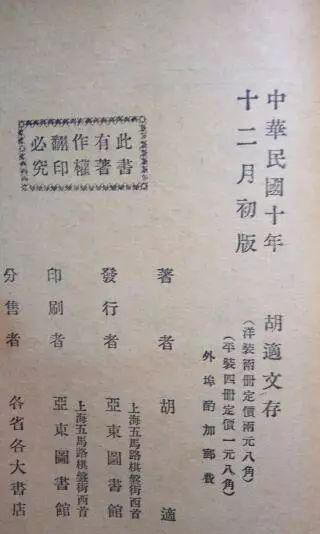 中華民國十年
十二月初版
胡適文存
(洋裝兩冊定價兩元八角)
(平裝四冊定價一元八角)
外埠酌加郵費
此書
有著
作權
翻印
必究
著者 胡適
發行者 上海五馬路棋盤街西首
亞東圖書館
印刷者 上海五馬路棋盤街西首
亞東圖書館
分售者 各省各大書店